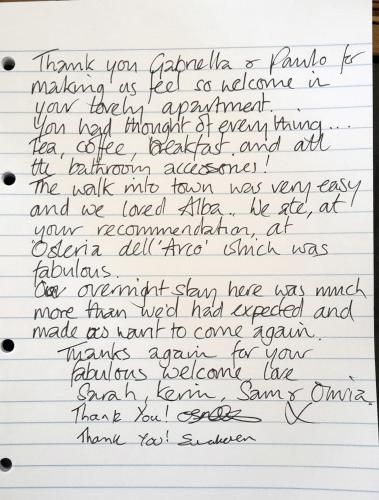 Thank you Gabriella & Paulo for
making us feel so welcome in
your lovely apartment.
You had thought of everything...
tea, coffee, breakfast and all
the bathroom accessories!
The walk into town was very easy
and we loved Alba.. We ate, at
your recommendation, at
'Osteria dell'Arco' which was
fabulous.
Our overnight stay here was much
more than we'd had expected and
made us want to come again.
Thanks again for your
fabulous welcome, love
Sarah, Kevin, Sam & Olivia
Thank You! X
Thank You!